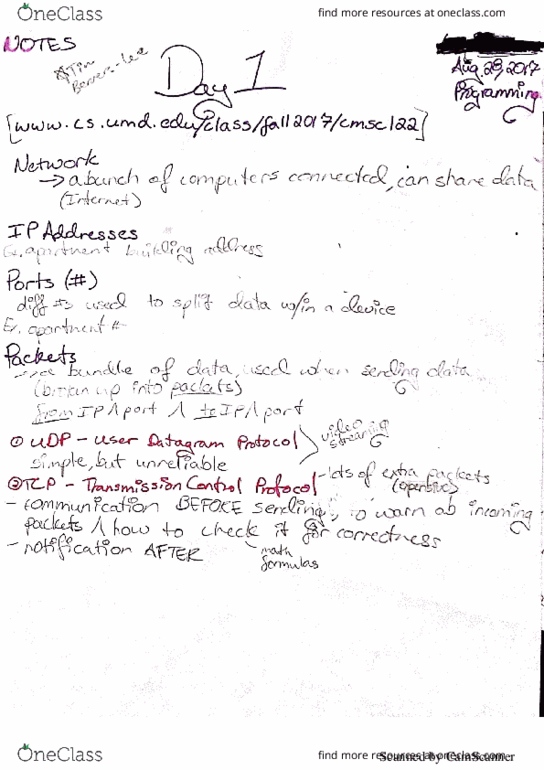 OneClass
find more resources at oneclass.com
NOTES
☆Tim
Berners-Lee
Day 1
Aug. 29, 2017
Programming
[www.cs.umd.edu/class/fall2017/cmsc122]
Network
→ a bunch of computers connected, can share data
(Internet)
IP Addresses
Ex. apartment building address
Ports (#)
diff #s used to split data w/in a device
Ex. apartment #
Packets
→ a bundle of data, used when sending data
(broken up into packets)
from IP/port to IP/port
① UDP - User Datagram Protocol
video streaming
simple, but unreliable
② TCP - Transmission Control Protocol
- lots of extra packets
- communication BEFORE sending, to warn ab incoming
packets how to check it for correctness
- notification AFTER
math
formulas
OneClass
find more resources at oneclass.com
Scanned by CamScanner